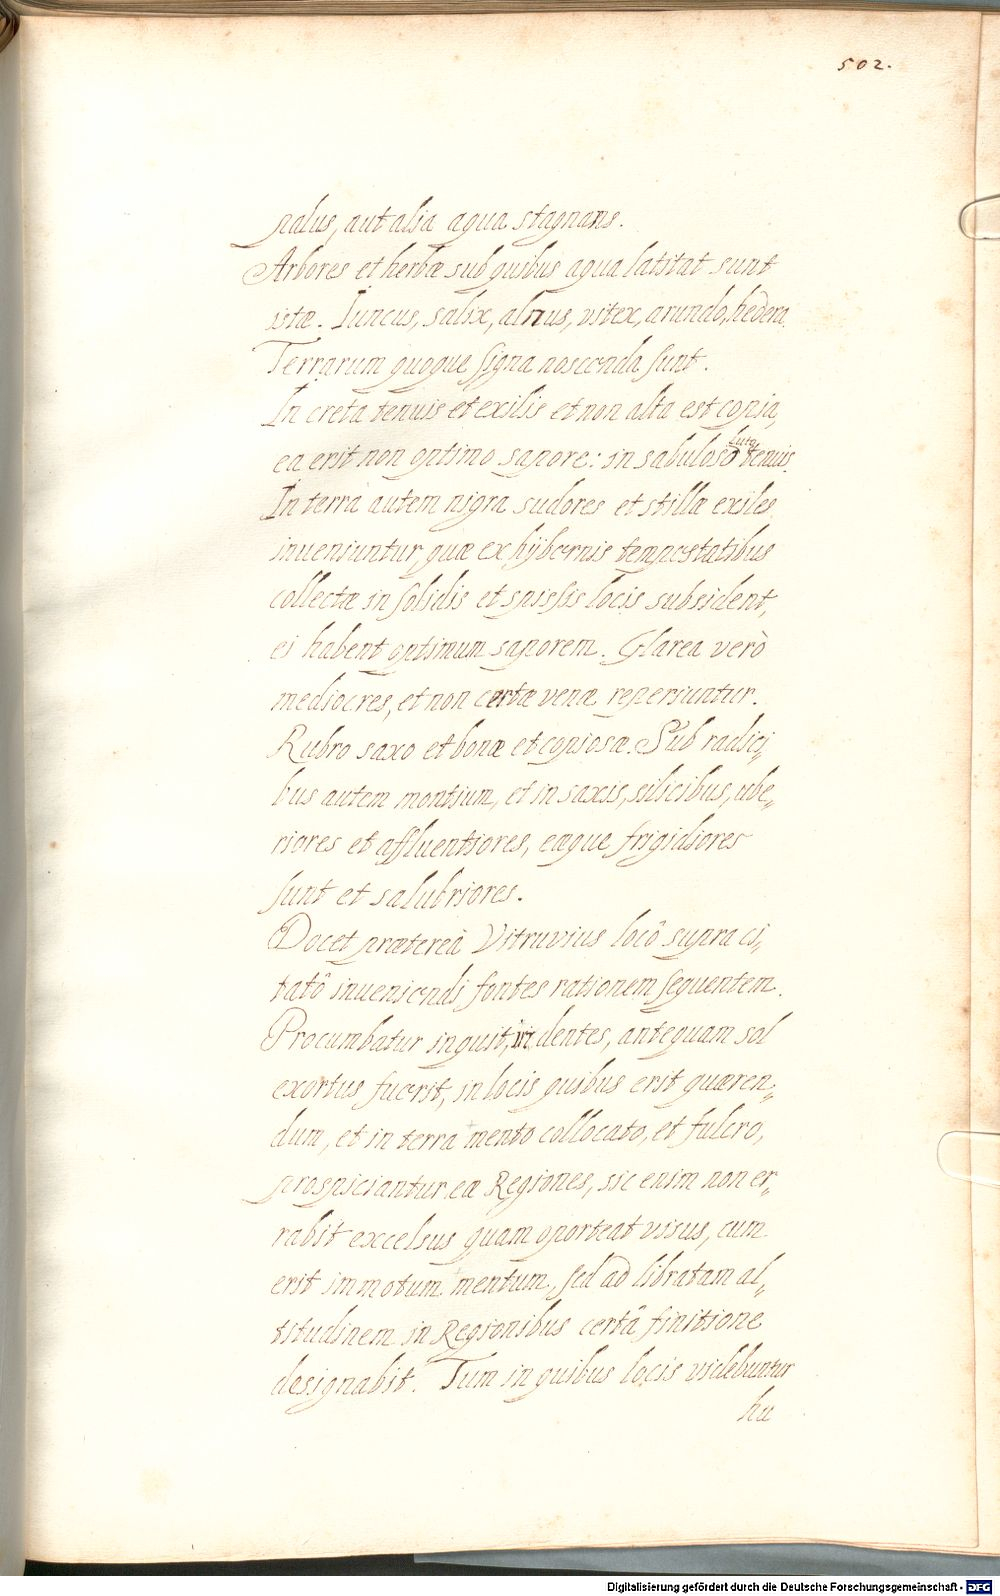 502.
palus, aut alia aqua stagnans.
Arbores et herbæ sub quibus aqua latitat sunt
istæ. Iuncus, salix, alnus, vitex, arundo, hedera.
Terrarum quoque signa noscenda sunt.
In creta tenuis et exilis et non alta est copia,
ea erit non optimo sapore: in sabuloso luto tenuis.
In terra autem nigra sudores et stillæ exiles
inueniuntur, quæ ex hijbernis tempestatibus
collectæ in solidis et spissis locis subsident,
ei habent optimum saporem. Glarea verò
mediocres, et non certæ venæ reperiuntur.
Rubro saxo et bonæ et copiosæ. Sub radici„
bus autem montium, et in saxis, silicibus, ube„
riores et affluentiores, eæque frigidiores
sunt et salubriores.
Docet præterea Vitruvius locô supra ci„
tatô inueniendi fontes rationem sequentem.
Procumbatur inquit, in dentes, antequam sol
exortus fuerit, in locis quibus erit quæren„
dum, et in terra mento collocato, et fulcro,
prospiciantur eæ Regiones, sic enim non er„
rabit excelsus quam oporteat visus, cum
erit immotum mentum, sed ad libratam al„
titudinem in Regionibus certâ finitione
designabit. Tum in quibus locis videbuntur
hu
Digitalisierung gefördert durch die Deutsche Forschungsgemeinschaft - DFG